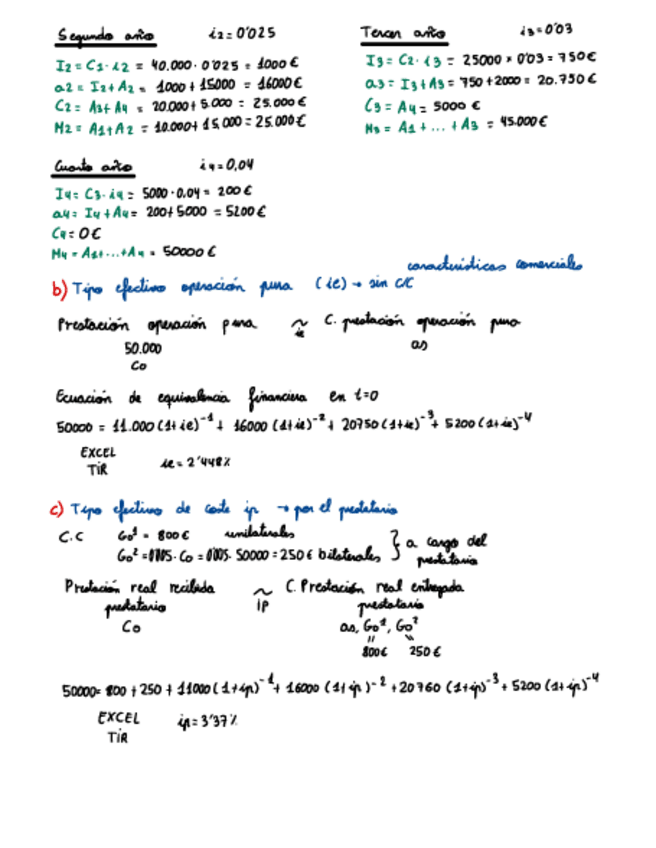 Segundo año i2 = 0'025
I2 = C1 · i2 = 40.000 · 0'025 = 1000 €
a2 = I2 + A2 = 1000 + 15000 = 16000 €
C2 = A3 + A4 = 20.000 + 5.000 = 25.000 €
M2 = A1 + A2 = 10.000 + 15.000 = 25.000 €
Tercer año i3 = 0'03
I3 = C2 · i3 = 25000 × 0'03 = 750 €
a3 = I3 + A3 = 750 + 2000 = 20.750 €
C3 = A4 = 5000 €
M3 = A1 + ... + A3 = 45.000 €
Cuarto año i4 = 0,04
I4 = C3 · i4 = 5000 · 0,04 = 200 €
a4 = I4 + A4 = 200 + 5000 = 5200 €
C4 = 0 €
M4 = A1 + ... + A4 = 50000 €
características comerciales
b) Tipo efectivo operación pura (ie) → sin C/C
Prestación operación pura ~ie C. prestación operación pura
50.000 as
Co
Ecuación de equivalencia financiera en t=0
50000 = 11.000 (1+ie)^-1 + 16000 (1+ie)^-2 + 20750 (1+ie)^-3 + 5200 (1+ie)^-4
EXCEL ie = 2'448%
TIR
c) Tipo efectivo de coste ip → por el prestatario
C.C Go¹ = 800 € unilaterales
Go² = 0'005 · Co = 0'005 · 50000 = 250 € bilaterales } a cargo del prestatario
Prestación real recibida ~ip C. Prestación real entregada
prestatario prestatario
Co as, Go¹, Go²
800 € 250 €
50000 = 800 + 250 + 11000 (1+ip)^-1 + 16000 (1+ip)^-2 + 20760 (1+ip)^-3 + 5200 (1+ip)^-4
EXCEL ip = 3'37%
TIR